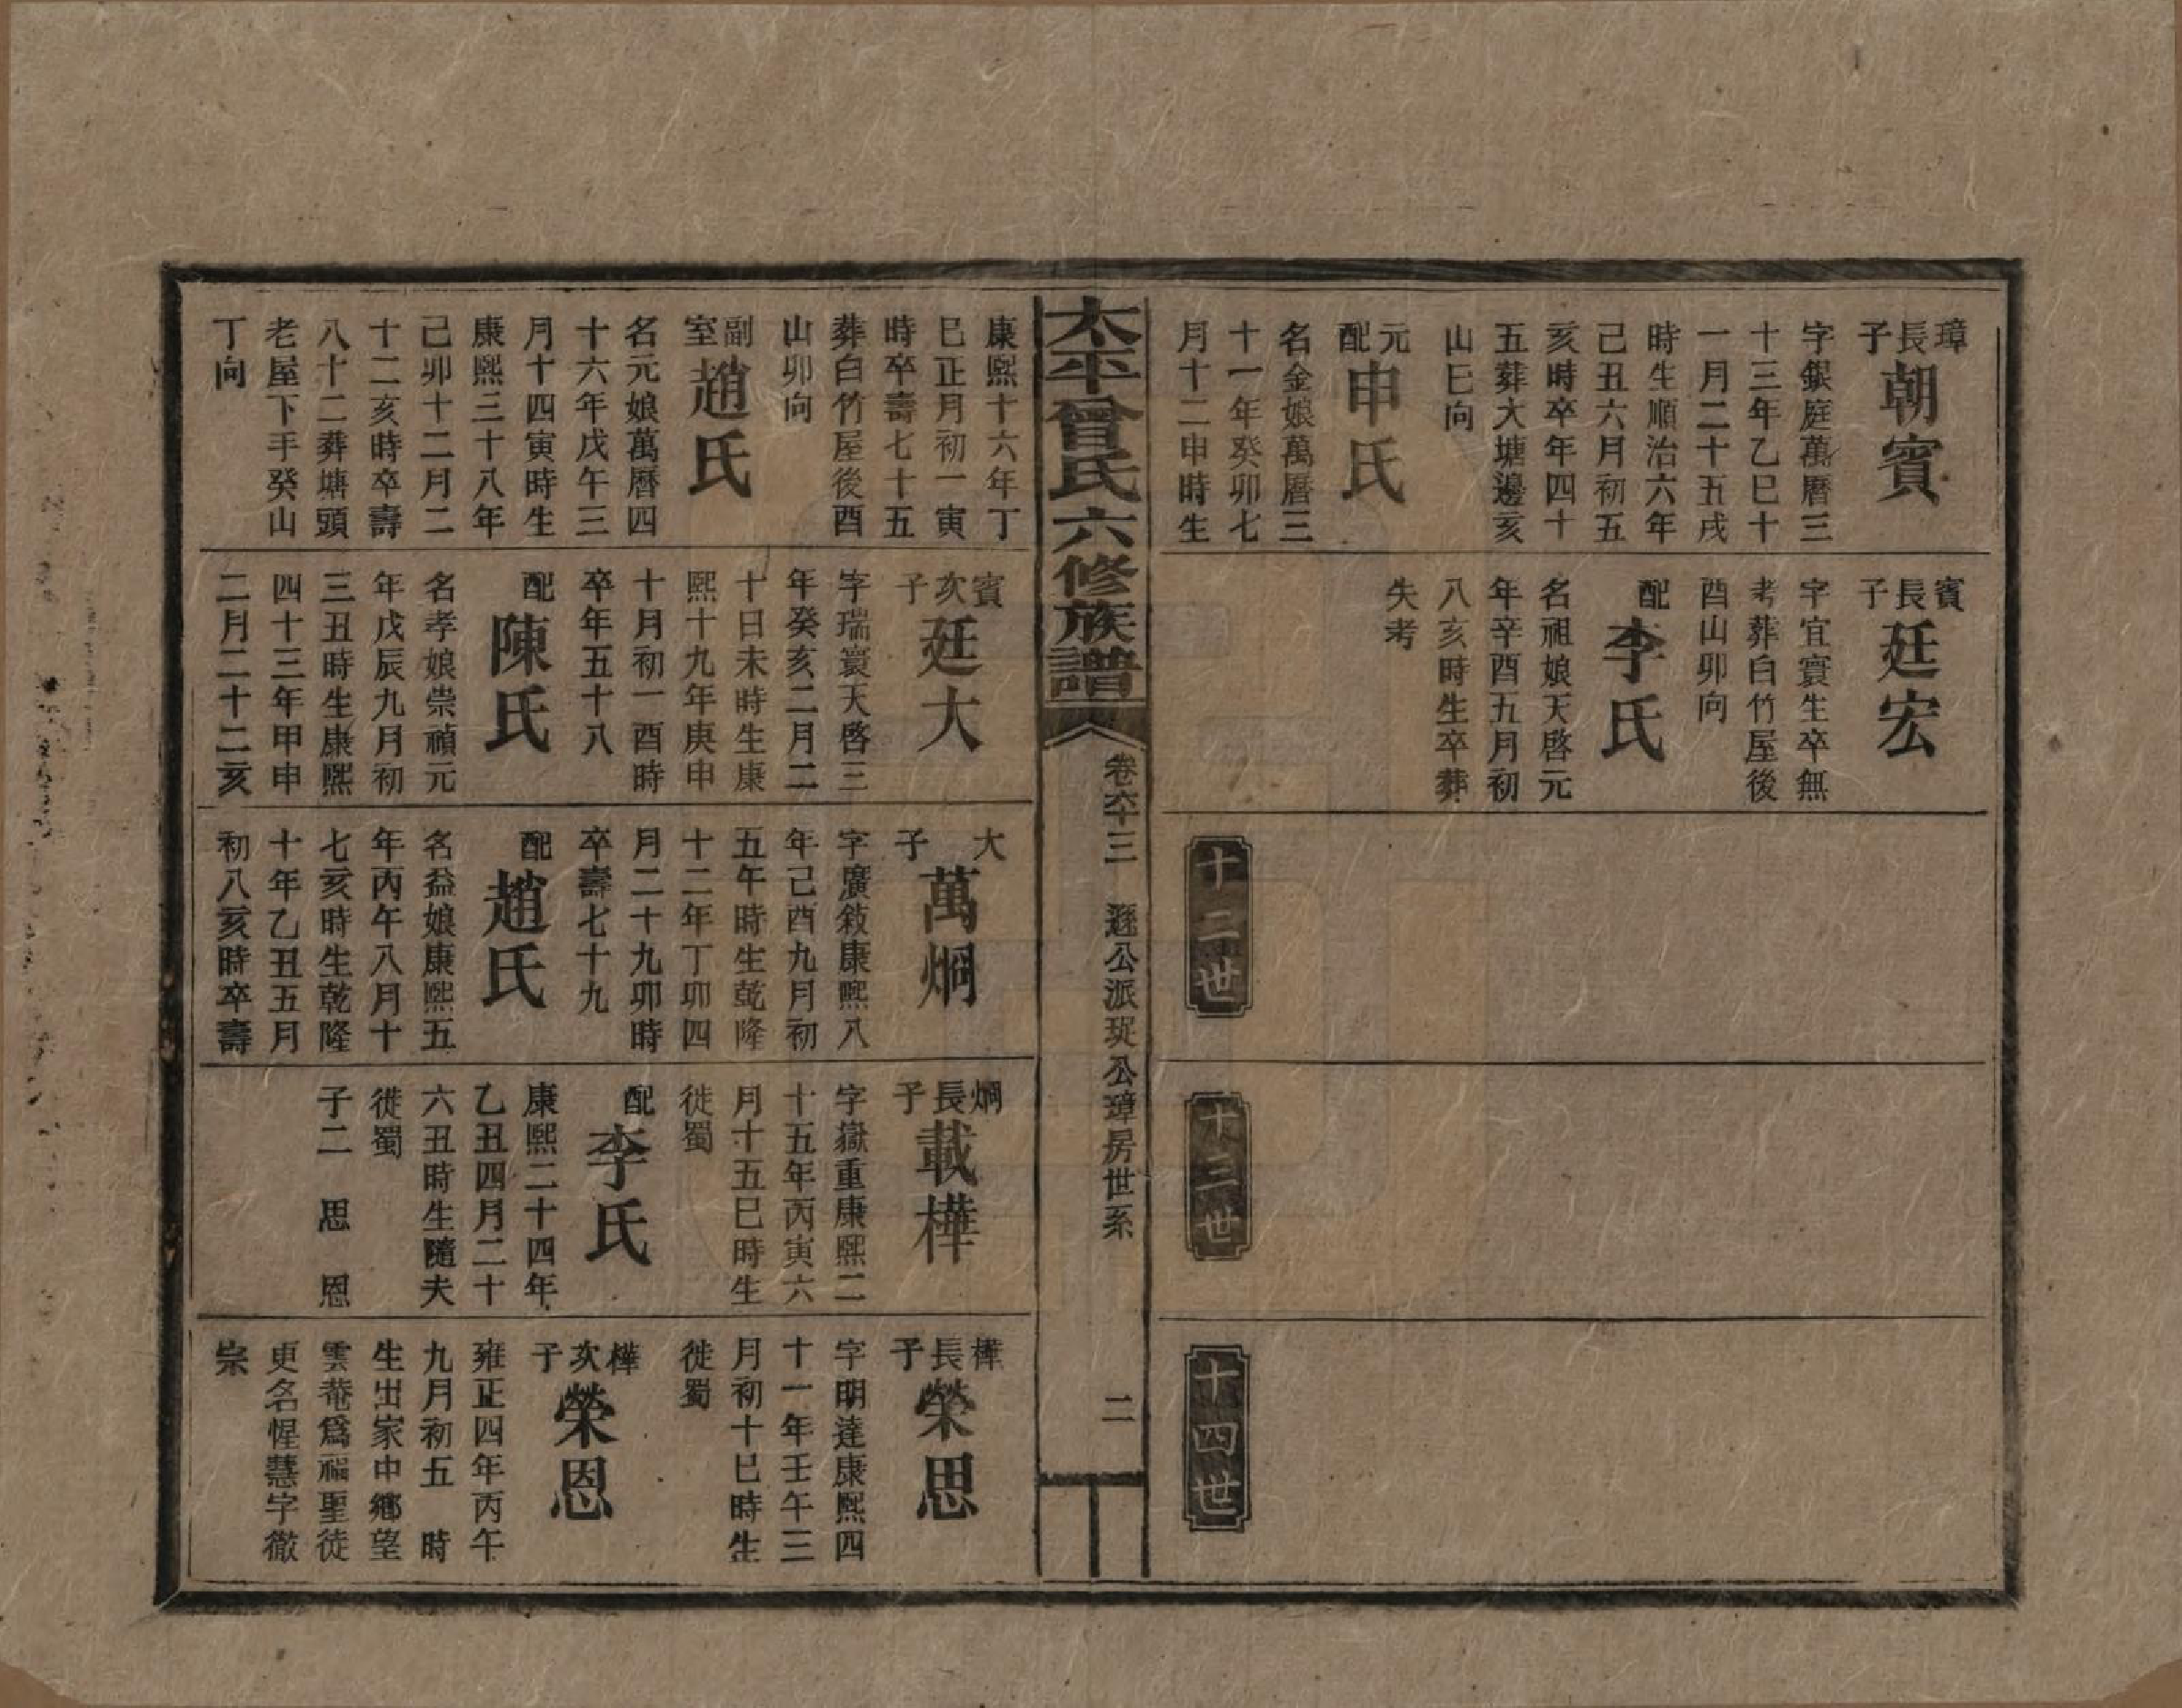 璋長子
朝賓
字銀庭萬曆三
十三年乙巳十
一月二十五戌
時生順治六年
己丑六月初五
亥時卒年四十
五葬大塘邊亥
山巳向
元配
申氏
名金娘萬曆三
十一年癸卯七
月十二申時生
賓長子
廷宏
字宜寰生卒無
考葬白竹屋後
酉山卯向
配
李氏
名祖娘天啓元
年辛酉五月初
八亥時生卒葬
失考
十二世
十三世
十四世
太平曾氏六修族譜
卷六十三
遜公派珽公璋房世系
二
康熙十六年丁
巳正月初一寅
時卒壽七十五
葬白竹屋後酉
山卯向
副室
趙氏
名元娘萬曆四
十六年戊午三
月十四寅時生
康熙三十八年
己卯十二月二
十二亥時卒壽
八十二葬塘頭
老屋下手癸山
丁向
賓次子
廷大
字瑞寰天啓三
年癸亥二月二
十日未時生康
熙十九年庚申
十月初一酉時
卒年五十八
配
陳氏
名孝娘崇禎元
年戊辰九月初
三丑時生康熙
四十三年甲申
二月二十二亥
大子
萬烱
字廣敍康熙八
年己酉九月初
五午時生乾隆
十二年丁卯四
月二十九卯時
卒壽七十九
配
趙氏
名益娘康熙五
年丙午八月十
七亥時生乾隆
十年乙丑五月
初八亥時卒壽
烱長子
載樺
字嶽重康熙二
十五年丙寅六
月十五巳時生
徙蜀
配
李氏
康熙二十四年
乙丑四月二十
六丑時生隨夫
徙蜀
子二　思　恩
樺長子
榮思
字明達康熙四
十一年壬午三
月初十巳時生
徙蜀
樺次子
榮恩
雍正四年丙午
九月初五　時
生出家中鄉望
雲菴爲福聖徒
更名惺慧字徹
崇